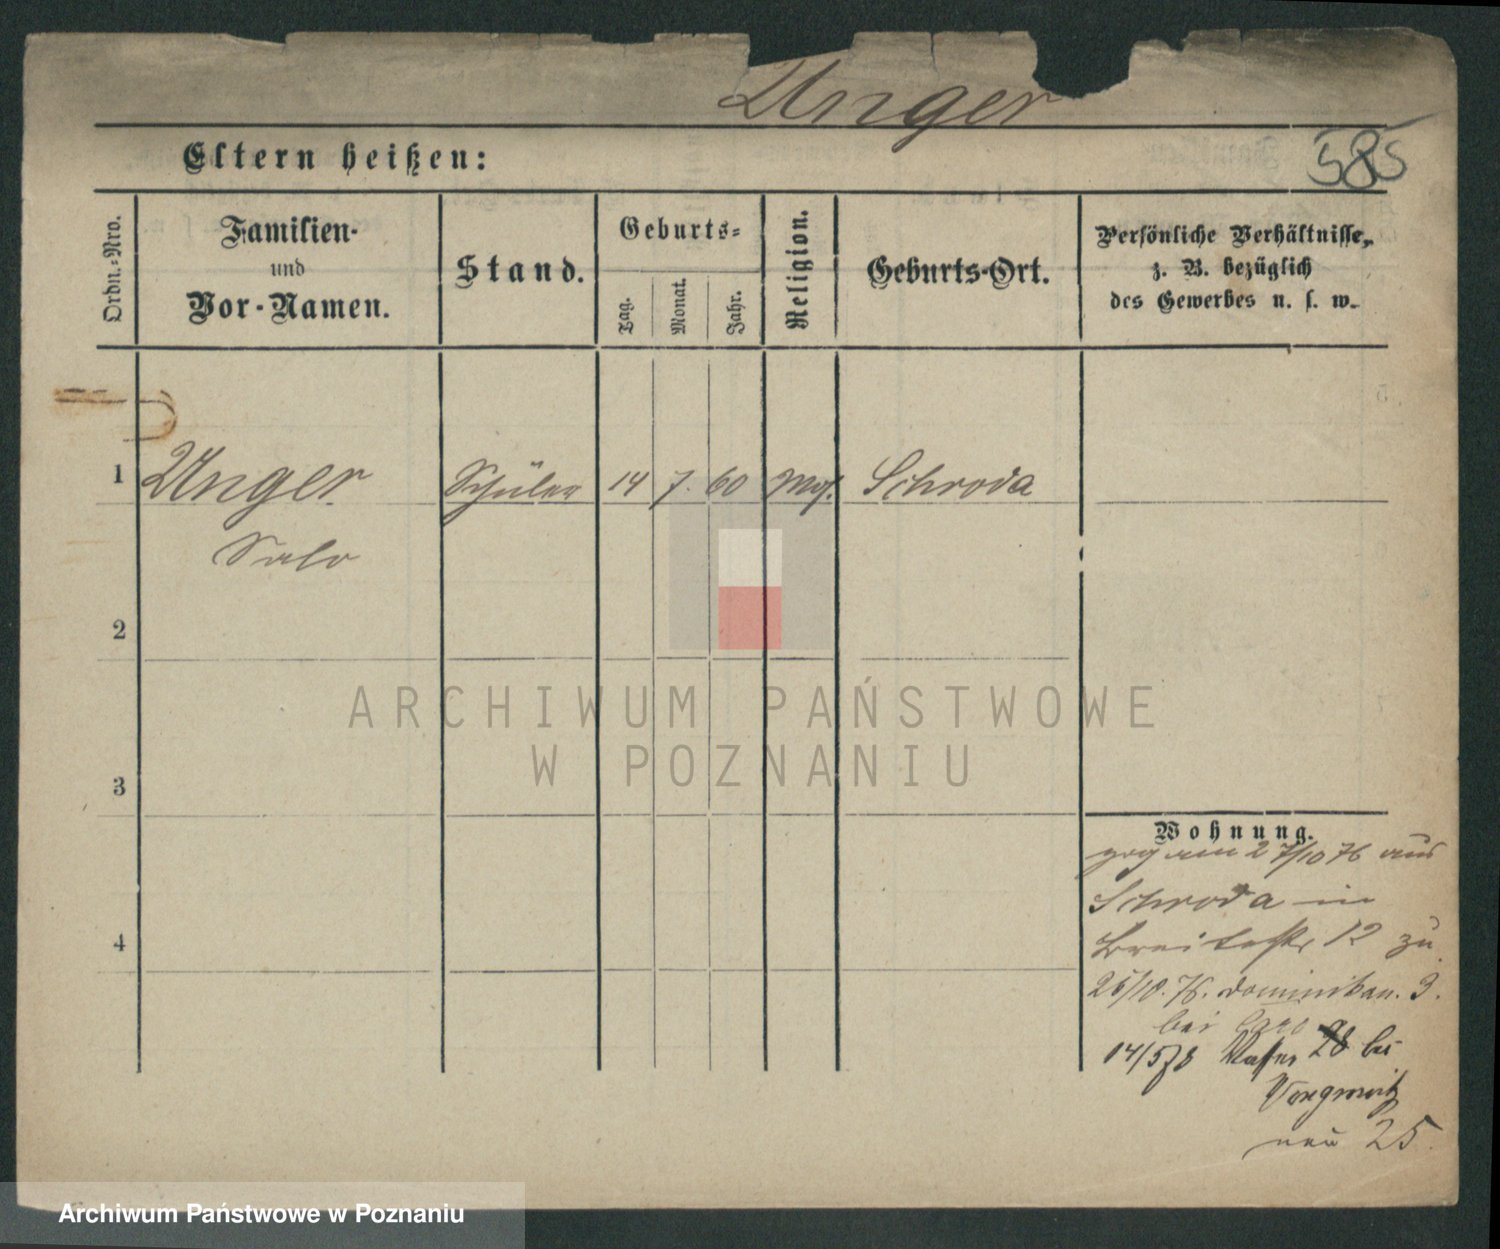 Unger
585
Eltern heißen:
Ordn.-Nro.
Familien-
und
Vor-Namen.
Stand.
Geburts-
Tag.
Monat.
Jahr.
Religion.
Geburts-Ort.
Persönliche Verhältnisse,
z. B. bezüglich
des Gewerbes u. s. w.
1 Unger Schüler 14 7. 60 Mos. Schroda
Salo
2
3
4
ARCHIWUM PAŃSTWOWE
W POZNANIU
Wohnung.
zog am 2 7/10 76 aus
Schroda in
Breitestr 12 zu
25/10. 76. Dominikan. 3.
bei
14/5 78 Wasser 28 bei
neu 25.
Archiwum Państwowe w Poznaniu